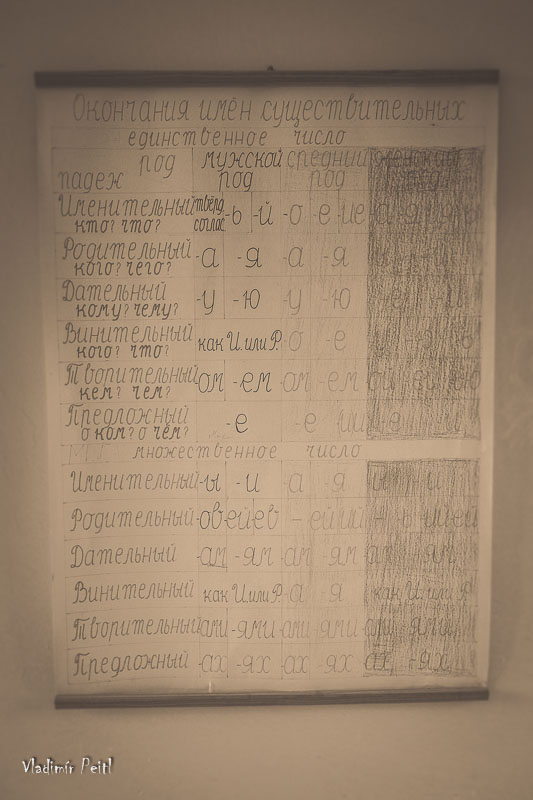 Окончания имён существительных
единственное число
род мужской средний женский
падеж род род
Именительный твёрд. -ь -й -о -е -ие -а -я
кто? что? соглас.
Родительный -а -я -а -я
кого? чего?
Дательный -у -ю -у -ю
кому? чему?
Винительный как И. или Р. -о -е
кого? что?
Творительный -ом -ем -ом -ем
кем? чем?
Предложный -е -е -ии
о ком? о чём?
множественное число
Именительный -ы -и -а -я
Родительный -ов -ей -ев - -ей -ий
Дательный -ам -ям -ам -ям -ам -ям
Винительный как И. или Р. -а -я как И. или Р.
Творительный -ами -ями -ами -ями -ами -ями
Предложный -ах -ях -ах -ях -ах -ях
Vladimír Peitl